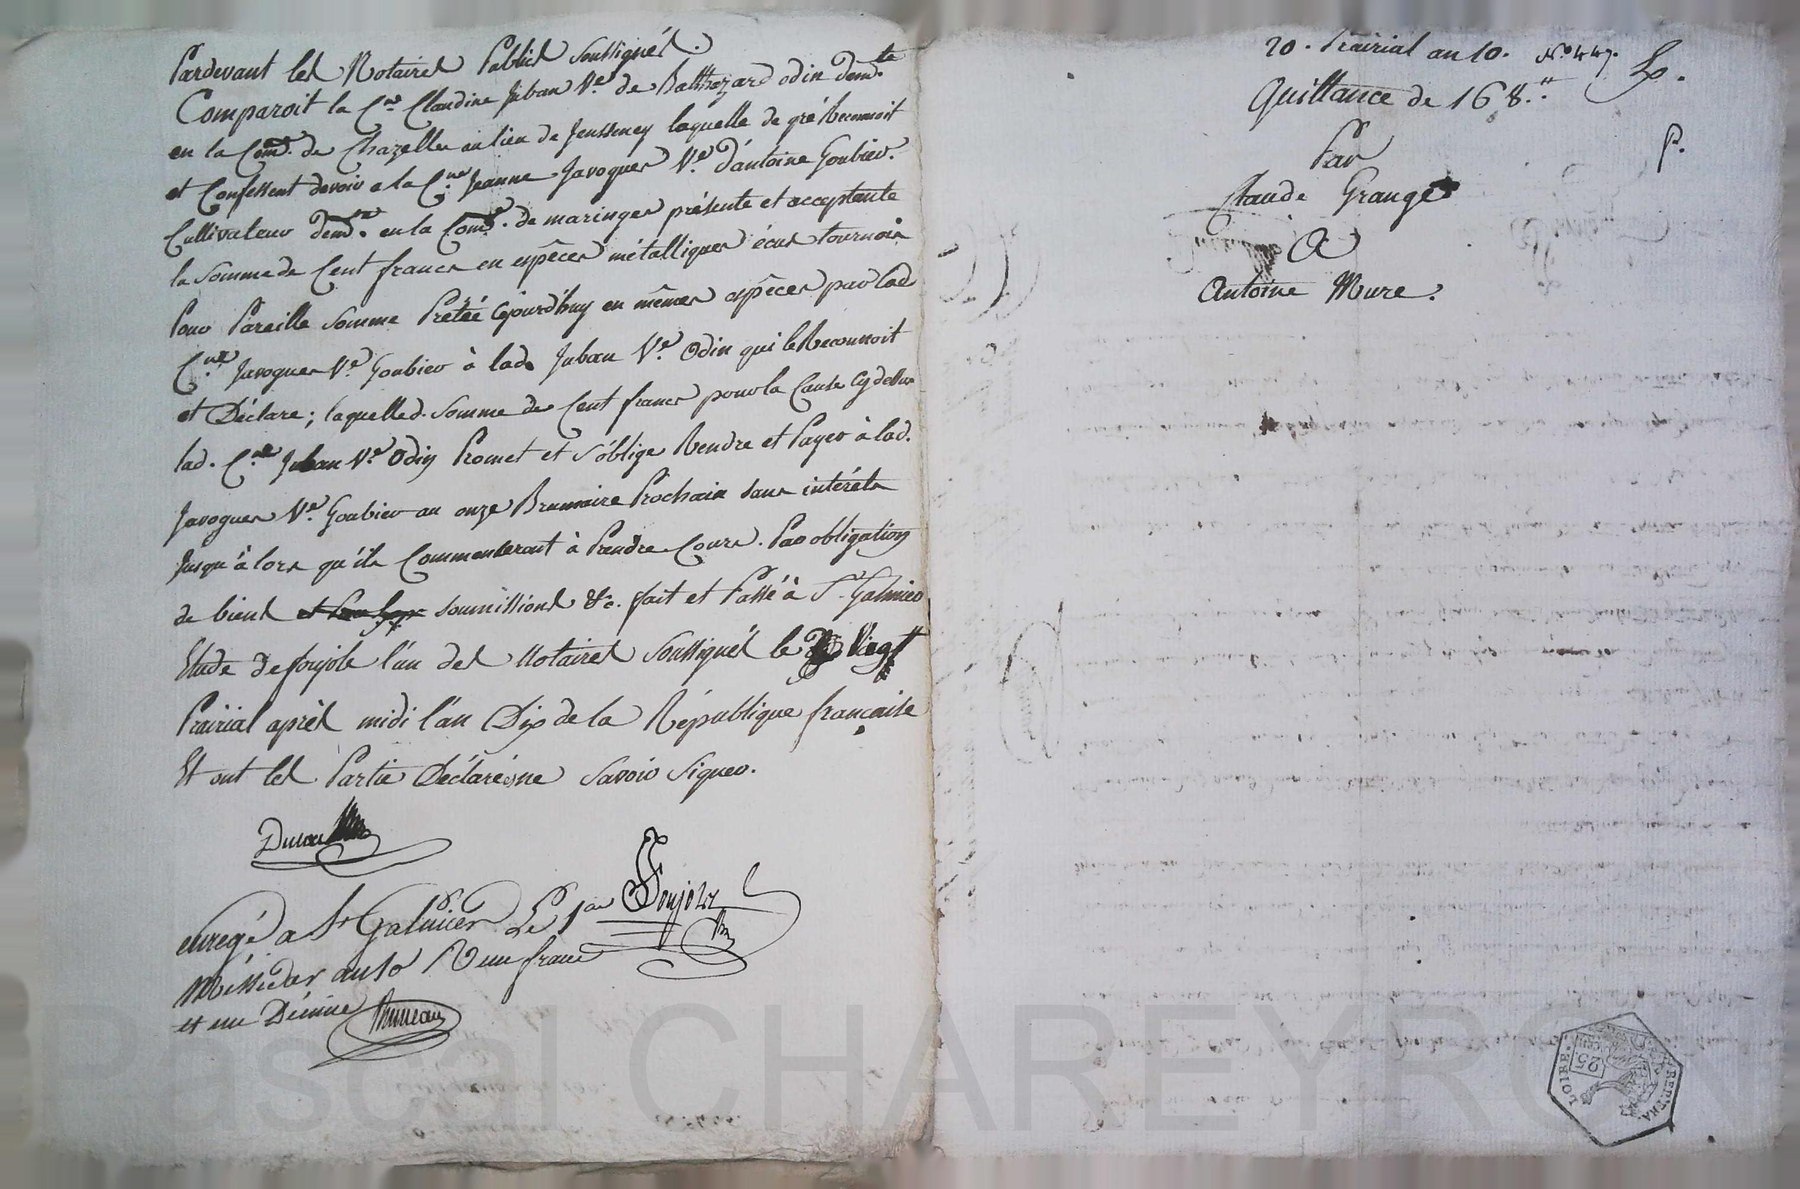 Pardevant les Notaires Publics Soussignés.
Comparoit la C.ne Claudine Juban V.e de Balthazard odin dem.te
en la Com.e de Chazelles au lieu de Jensseney laquelle de gré Reconnoit
et Confessent devoir a la C.ne Jeanne Javogues V.e d'antoine Goubier.
Cultivateur dem.te en la Com.e de maringes présente et acceptante
la Somme de Cent francs en espèces métalliques écus tournois
Pour Pareille Somme Prétée cejourd'huy en mêmes espèces par lad
C.ne Javogues V.e Goubier à lad. Juban V.e Odin qui le Reconnoit
et Déclare ; laquelle d. Somme de Cent francs pour la Cause cy dessus
lad. C.ne Juban V.e Odin Promet et S'oblige Rendre et Payer à lad.
Javogues V.e Goubier au onze Brumaire Prochain Sans intérêts
Jusqu'à lors qu'ils Commenceront à Prendre Cours. Par obligation
de biens soumissions &c. fait et Passé à S.t Galmier
Etude de foujols l'un des Notaires Soussignés le Vingt
Prairial après midi l'an Dix de la République française
Et ont les Partie Déclarés ne Savoir Signer.
Foujols
enregé a St Galmier Le 1er
Messidor an 10 R un franc
et un Décime
20. Prairial an 10. N.o 447.
Quittance de 168.tt
Par
P.
Claude Grange
A
Antoine Mure.
LOIRE.
25
CEN
Pascal CHAREYRON